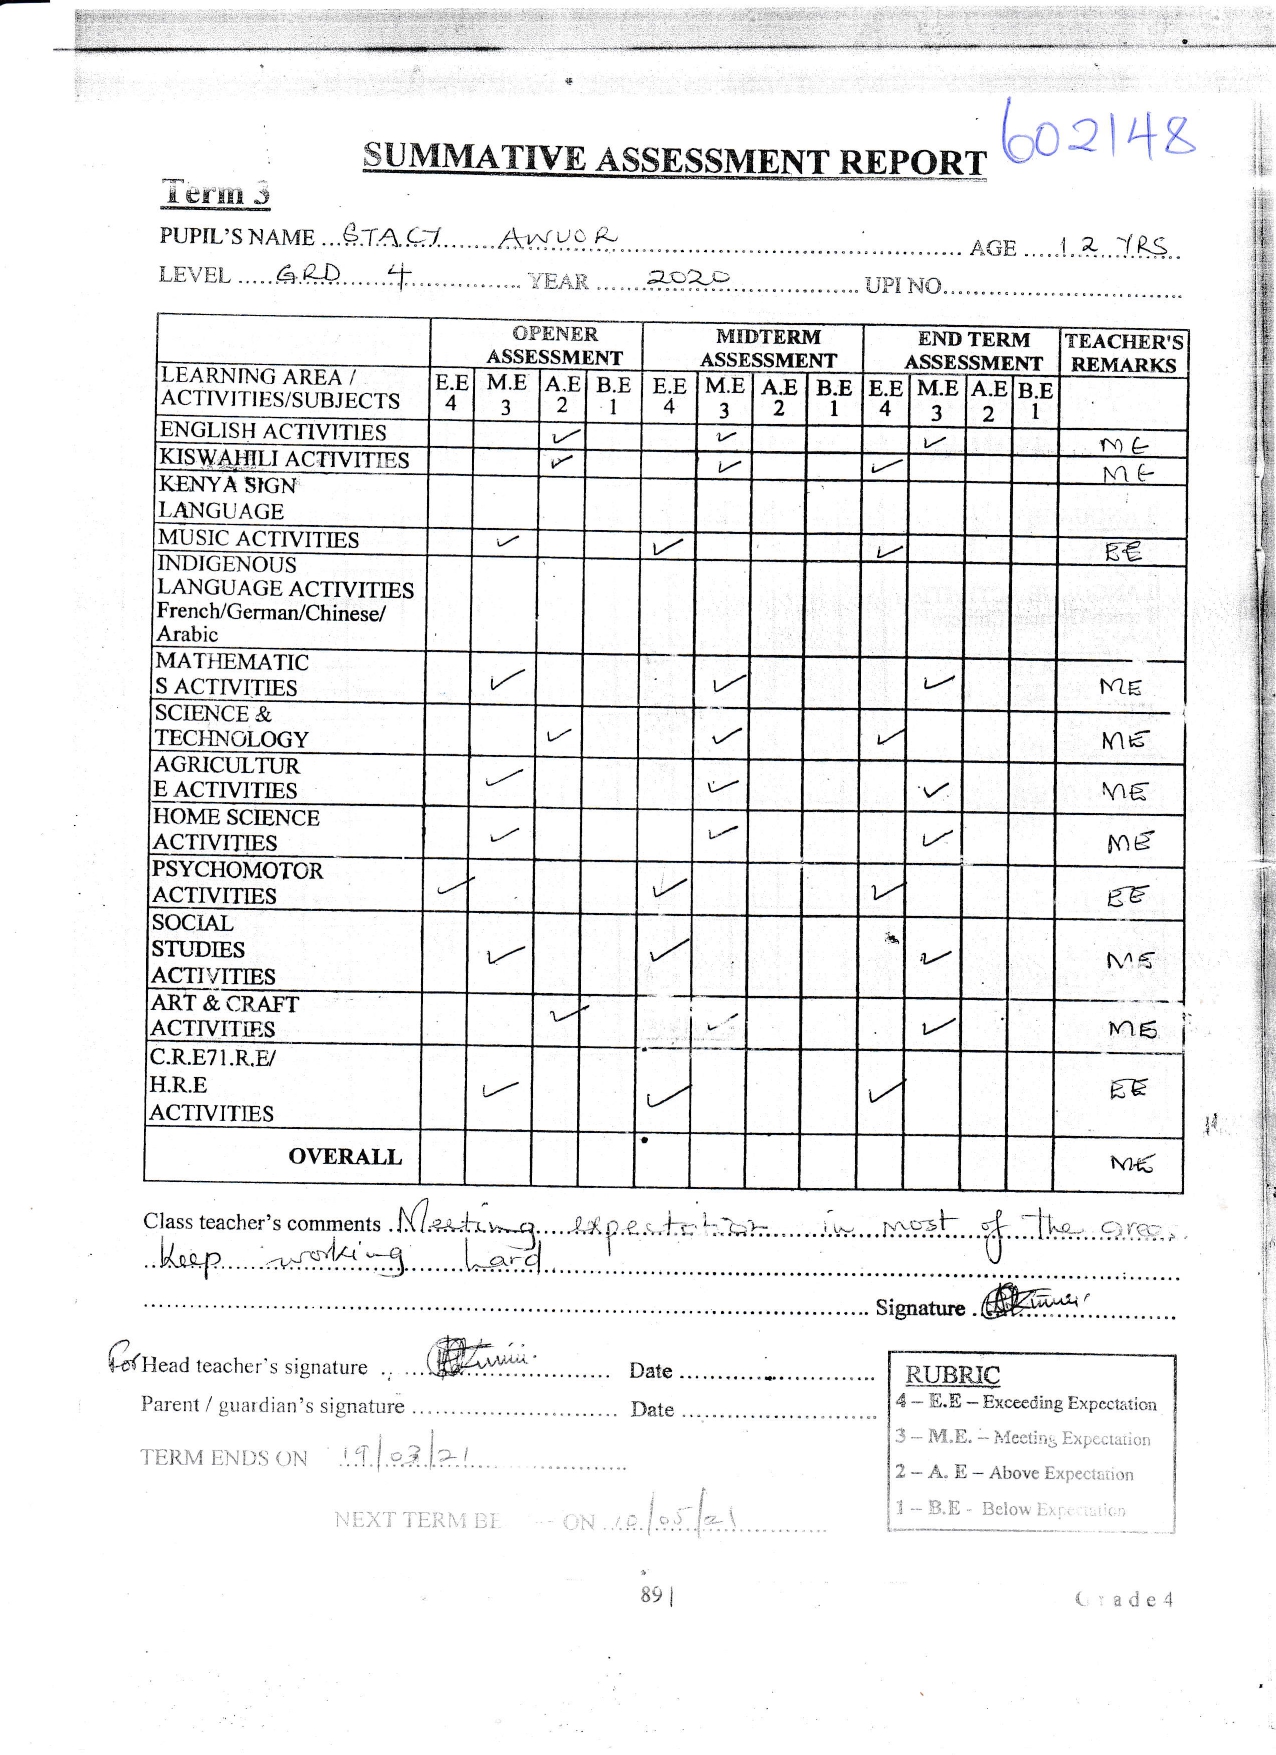 602148
SUMMATIVE ASSESSMENT REPORT
Term 3
PUPIL'S NAME ...STACY....... AWUOR............................................... AGE .....12 YRS
LEVEL .....GRD.....4................ YEAR ......2020................... UPI NO...............................
OPENER ASSESSMENT MIDTERM ASSESSMENT END TERM ASSESSMENT TEACHER'S REMARKS
LEARNING AREA / ACTIVITIES/SUBJECTS E.E 4 M.E 3 A.E 2 B.E 1 E.E 4 M.E 3 A.E 2 B.E 1 E.E 4 M.E 3 A.E 2 B.E 1
ENGLISH ACTIVITIES ✓ ✓ ✓ ME
KISWAHILI ACTIVITIES ✓ ✓ ✓ ME
KENYA SIGN
LANGUAGE
MUSIC ACTIVITIES ✓ ✓ ✓ EE
INDIGENOUS
LANGUAGE ACTIVITIES
French/German/Chinese/
Arabic
MATHEMATIC
S ACTIVITIES ✓ ✓ ✓ ME
SCIENCE &
TECHNOLOGY ✓ ✓ ✓ ME
AGRICULTUR
E ACTIVITIES ✓ ✓ ✓ ME
HOME SCIENCE
ACTIVITIES ✓ ✓ ✓ ME
PSYCHOMOTOR
ACTIVITIES ✓ ✓ ✓ EE
SOCIAL
STUDIES ✓ ✓ ✓ ME
ACTIVITIES
ART & CRAFT
ACTIVITIES ✓ ✓ ✓ ME
C.R.E71.R.E/
H.R.E ✓ ✓ ✓ EE
ACTIVITIES
OVERALL ME
Class teacher's comments .Meeting expectation in most of the areas.
Keep working hard
Signature
For Head teacher's signature Date
Parent / guardian's signature Date
TERM ENDS ON 19/03/21
NEXT TERM BE ON 10/05/21
RUBRIC
4 – E.E – Exceeding Expectation
3 – M.E. – Meeting Expectation
2 – A. E – Above Expectation
1 – B.E - Below Expectation
89 |
Grade 4